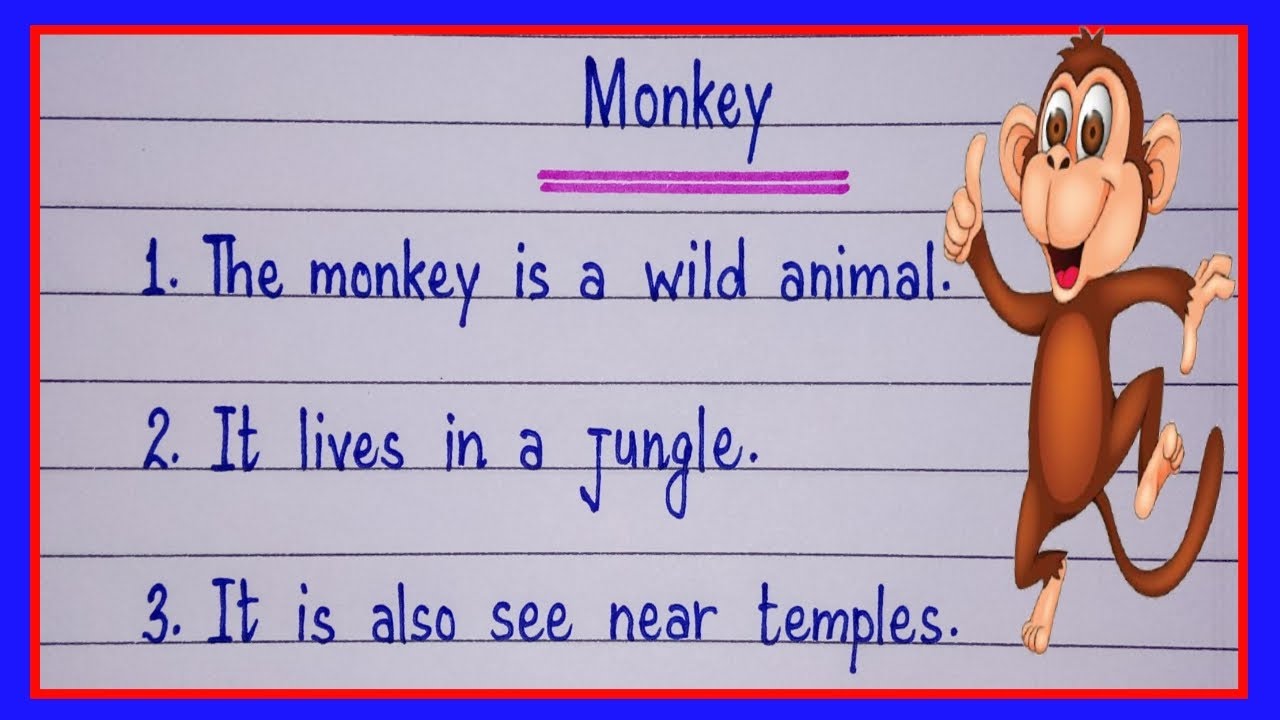 Monkey
1. The monkey is a wild animal.
2. It lives in a jungle.
3. It is also see near temples.